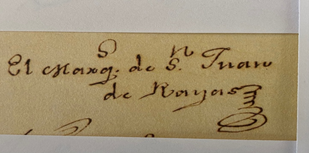 El Marqs. de Sn. Juan
de Rayas